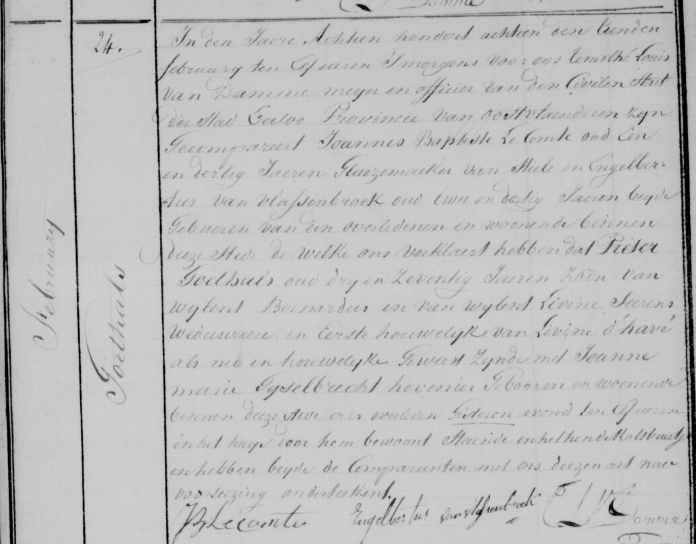 Damme
24.
In den Jaere Achtien hondert achtien den tienden
february ten uren S'morgens voor ons timothé Louis
van Damme meyer en officier van den Civilen Staet
der Stad Eecloo Provincie van oostvlaenderen zyn
Gecompareert Joannes Baptiste Le Comte oud Een
en dertig Jaeren Glazemaeker van Stiele en Engelber-
tus van vlassenbroek oud twee en dertig Jaeren beyde
Gebueren van den overledenen en woonende binnen
deeze Stede de welke ons verklaert hebben dat Pieter
Goethals oud dry en Zeventig Jaeren Zoon van
wylent Bernardus en van wylent Livine
Weduwaere in Eerste houwelyk van Livine d'havé
als nu in houwelyke Geweest Zynde met Joanne
marie Gyselbrecht hovenier Gebooren en woonende
binnen deeze stede is overleden Gisteren avond ten uren
in het huys door hem bewoont Staende in
en hebben beyde de Comparanten met ons deezen act naer
voorleezing onderteekent.
JB Lecomte Engelbertus van vlassenbroek Damme
February
Goethals